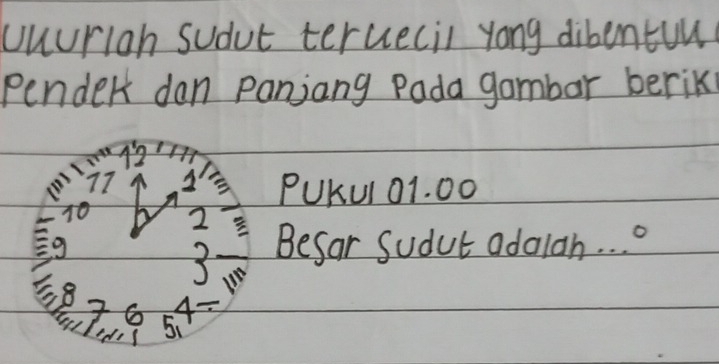 Ukurlah sudut terkecil yang dibentuk
Pendek dan Panjang Pada gambar berik
12
11 1
10 2
9 3
8 4
7 6 5
PUKUl 01.00
Besar Sudut adalah ...°